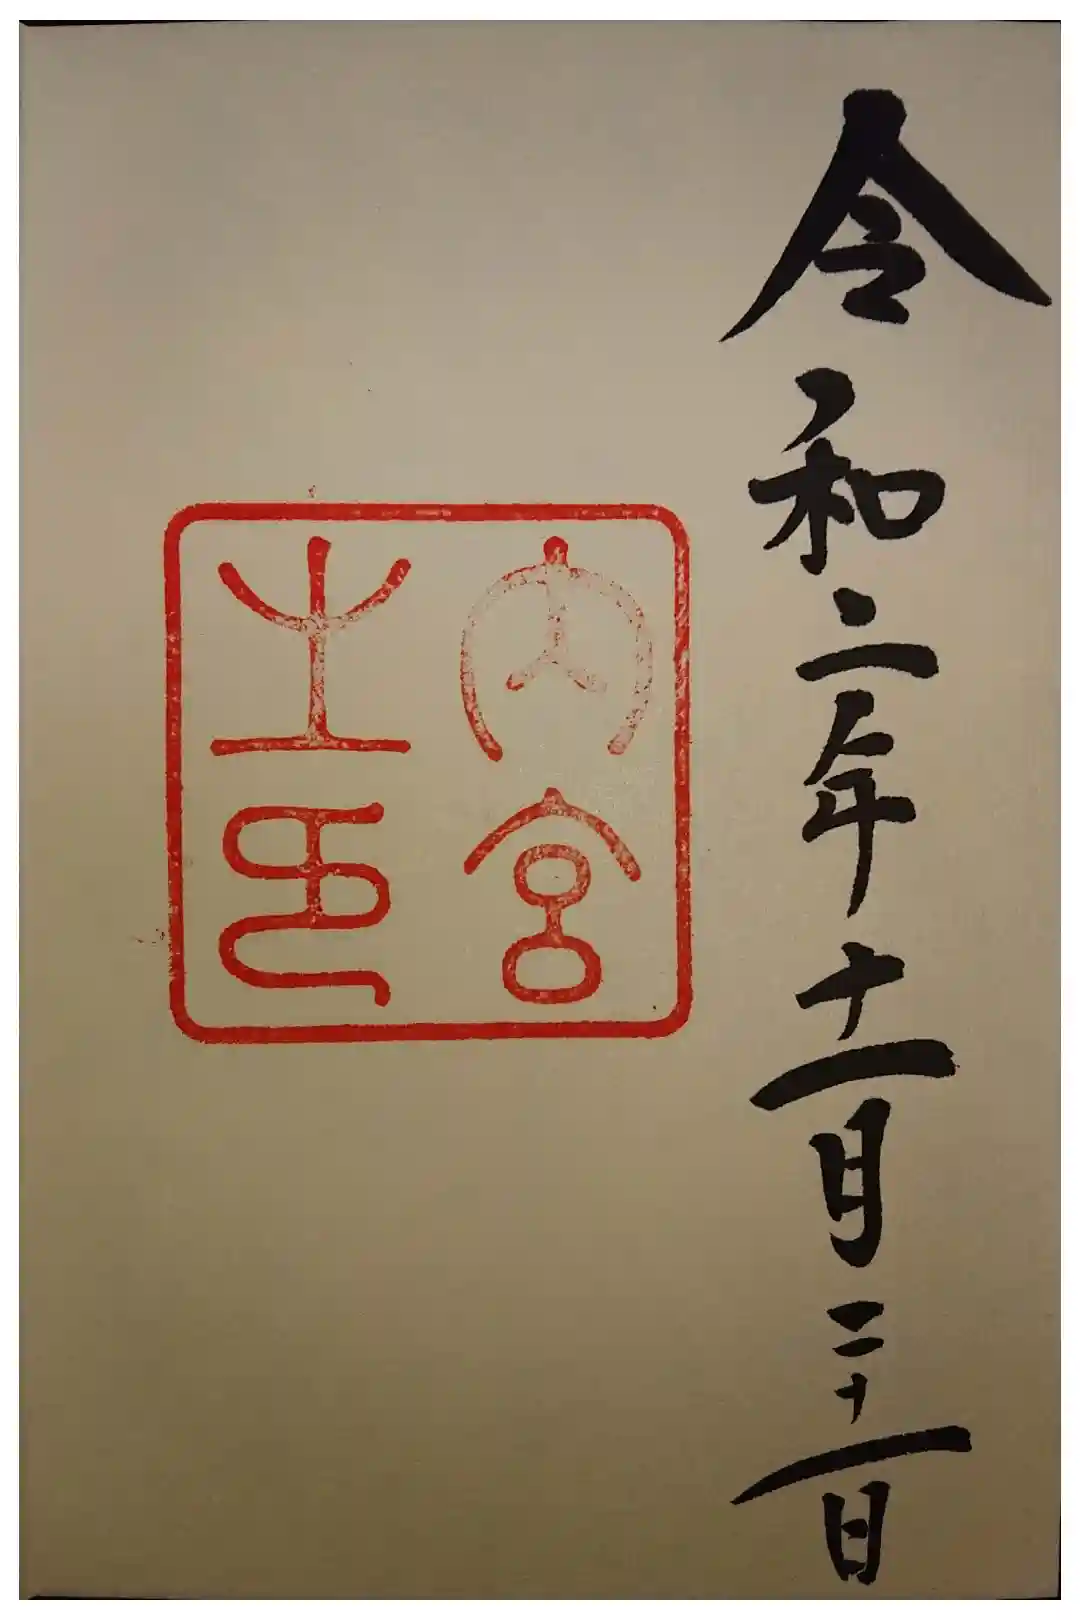 令和二年十一月二十一日
内宮
之印